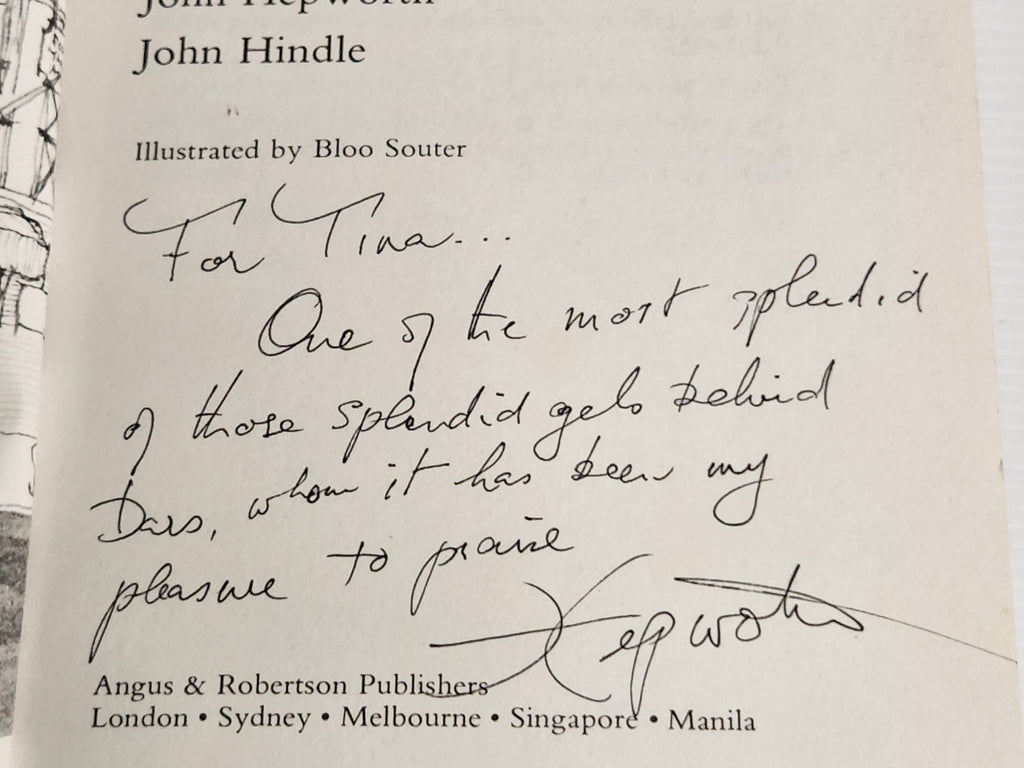 John Hepworth
John Hindle
Illustrated by Bloo Souter
For Tina...
One of the most splendid
of those splendid gels behind
Bars, whom it has been my
pleasure to praise
Hepworth
Angus & Robertson Publishers
London • Sydney • Melbourne • Singapore • Manila